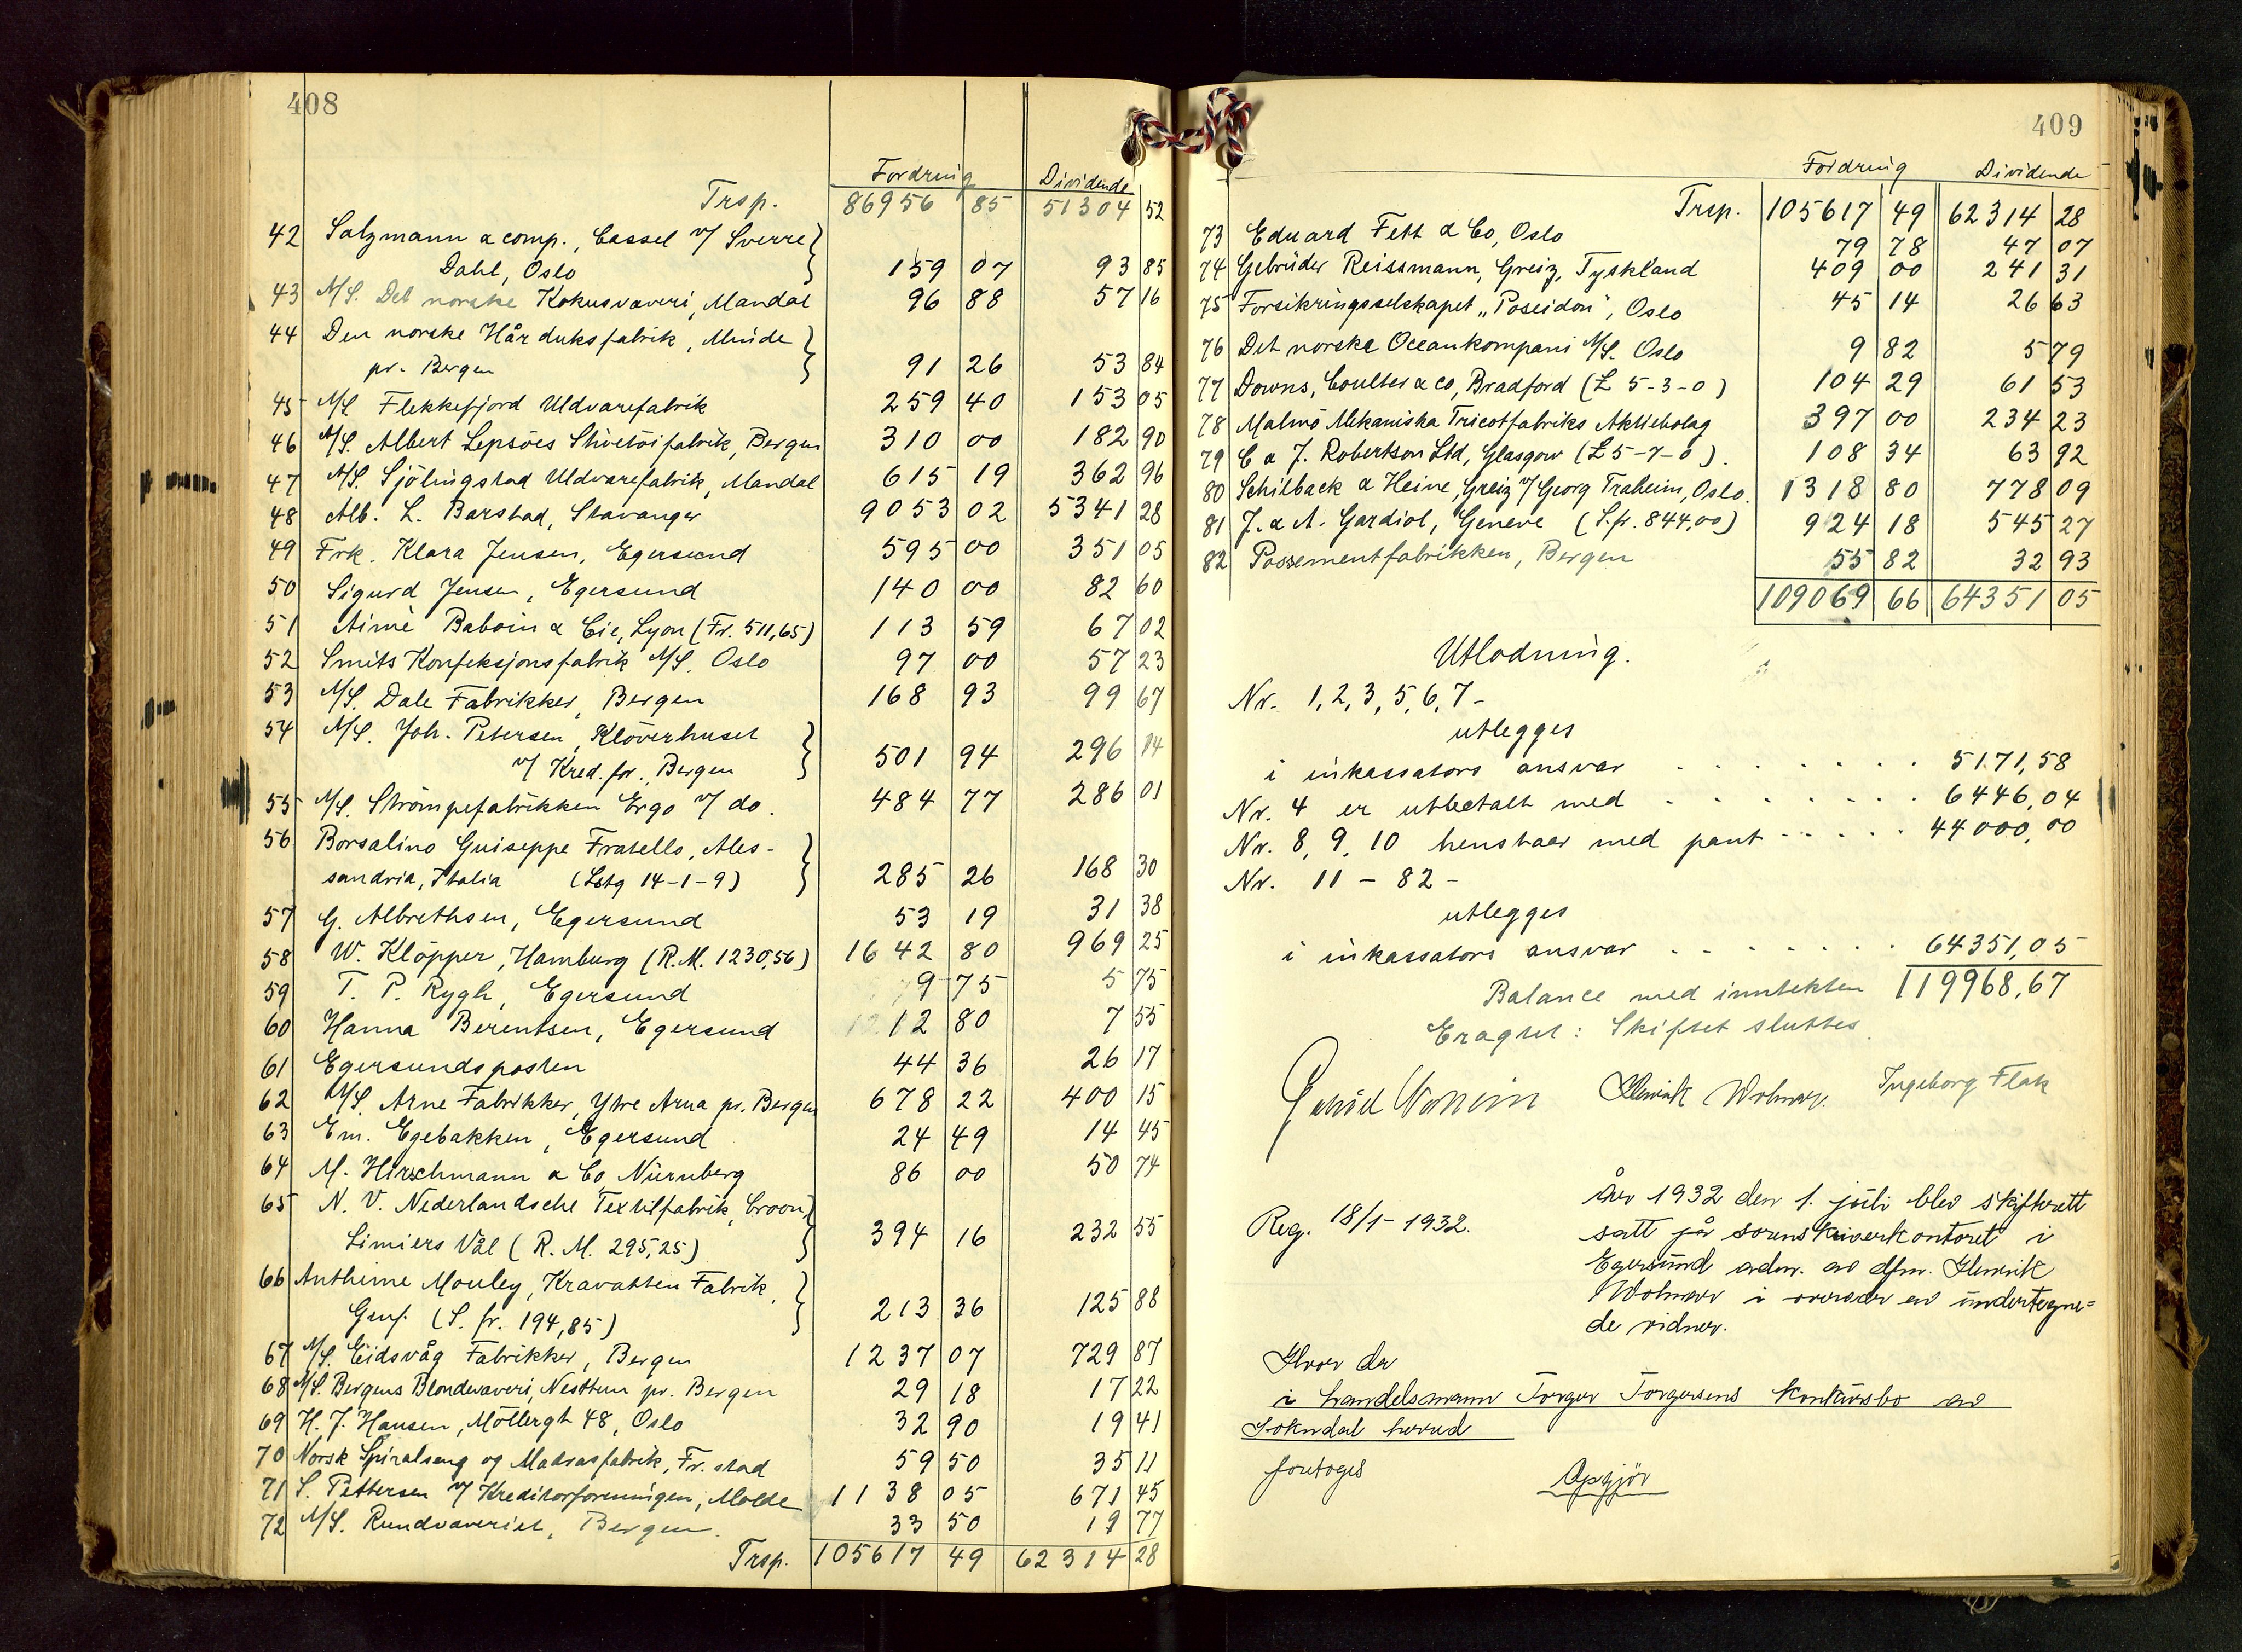 408
Fordring Dividende
Trsp. 86956 85 51304 52
42 Salzmann & comp., Cassel v/ Sverre
Dahl, Oslo 159 07 93 85
43 A/S. Det norske Kokusvæveri, Mandal 96 88 57 16
44 Den norske Hårduksfabrik, Minde
pr. Bergen 91 26 53 84
45 A/S Flekkefjord Uldvarefabrik 259 40 153 05
46 A/S. Albert Lepsöes Skoetöifabrik, Bergen 310 00 182 90
47 A/S. Sjölingstad Uldvarefabrik, Mandal 615 19 362 96
48 Alb. L. Barstad, Stavanger 9053 02 5341 28
49 Frk. Klara Jensen, Egersund 595 00 351 05
50 Sigurd Jensen, Egersund 140 00 82 60
51 Aimè Baboin & Cie, Lyon (Fr. 511,65) 113 59 67 02
52 Smits Konfeksjonsfabrik A/S. Oslo 97 00 57 23
53 A/S. Dale Fabrikker, Bergen 168 93 99 67
54 A/S. Joh. Petersen, Klöverhuset
v/ Kred.for. Bergen 501 94 296 14
55 A/S. Strömpefabrikken Ergo v/ do. 484 77 286 01
56 Borsalino Guiseppe Fratello, Ales-
sandria, Italia (Lstg 14-1-9) 285 26 168 30
57 G. Albrethsen, Egersund 53 19 31 38
58 W. Klöpper, Hamburg (R.M. 1230,56) 1642 80 969 25
59 T. P. Rygh, Egersund 9 75 5 75
60 Hanna Berentsen, Egersund 12 80 7 55
61 Egersundsposten 44 36 26 17
62 A/S. Arne Fabrikker, Ytre Arna pr. Bergen 678 22 400 15
63 Em. Egebakken, Egersund 24 49 14 45
64 M. Hirschmann & Co Nürnberg 86 00 50 74
65 N. V. Nederlandsche Textilfabrik, Croon,
Simiers Vål (R. M. 295,25) 394 16 232 55
66 Antheime Mouley, Kravatten Fabrik,
Genf. (S. fr. 194,85) 213 36 125 88
67 A/S. Eidsvåg Fabrikker, Bergen 1237 07 729 87
68 A/S. Bergens Blondevæveri, Nesttun pr. Bergen 29 18 17 22
69 H. J. Hansen, Möllergt 48, Oslo 32 90 19 41
70 Norsk Spiralseng og Madrasfabrik, Fr.stad 59 50 35 11
71 S. Pettersen v/ Kreditorforeningen, Molde 1138 05 671 45
72 A/S. Rundvæveriet, Bergen. 33 50 19 77
Trsp. 105617 49 62314 28
409
Fordring Dividende
Trsp. 105617 49 62314 28
73 Eduard Fett & Co, Oslo 79 78 47 07
74 Gebrüder Reissmann, Greiz, Tyskland 409 00 241 31
75 Forsikringsselskapet "Poseidon", Oslo 45 14 26 63
76 Det norske Oceankompani A/S. Oslo 9 82 5 79
77 Downs, Coulter & co, Bradford (£ 5-3-0) 104 29 61 53
78 Malmö Mekaniska Tricotfabriks Aktiebolag 397 00 234 23
79 C & J. Robertson Ltd, Glasgow (£ 5-7-0). 108 34 63 92
80 Schilback & Heine, Greiz v/ Georg Traheim, Oslo. 1318 80 778 09
81 J. & A. Gardiol, Geneve (S.fr. 844,00) 924 18 545 27
82 Possementfabrikken, Bergen 55 82 32 93
109069 66 64351 05
Utlodning.
Nr. 1, 2, 3, 5, 6, 7 -
utlegges
i inkassators ansvar 5171,58
Nr. 4 er utbetalt med 6446,04
Nr. 8, 9, 10 henstaar med pant 44000,00
Nr. 11 - 82 -
utlegges
i inkassators ansvar 64351,05
Balance med inntekten 119968,67
Eragtet: Skiftet sluttes
Henrik Wolmar. Ingeborg Flak
Reg. 18/1-1932.
År 1932 den 1. juli blev skifterett
satt på sorenskriverkontoret i
Egersund adm. av dfm. Henrik
Wolmar i overvær av undertegne=
de vidner.
Hvor da
i handelsmann Torger Torgersens konkursbo av
Sokndal herred
foretoges Opgjör